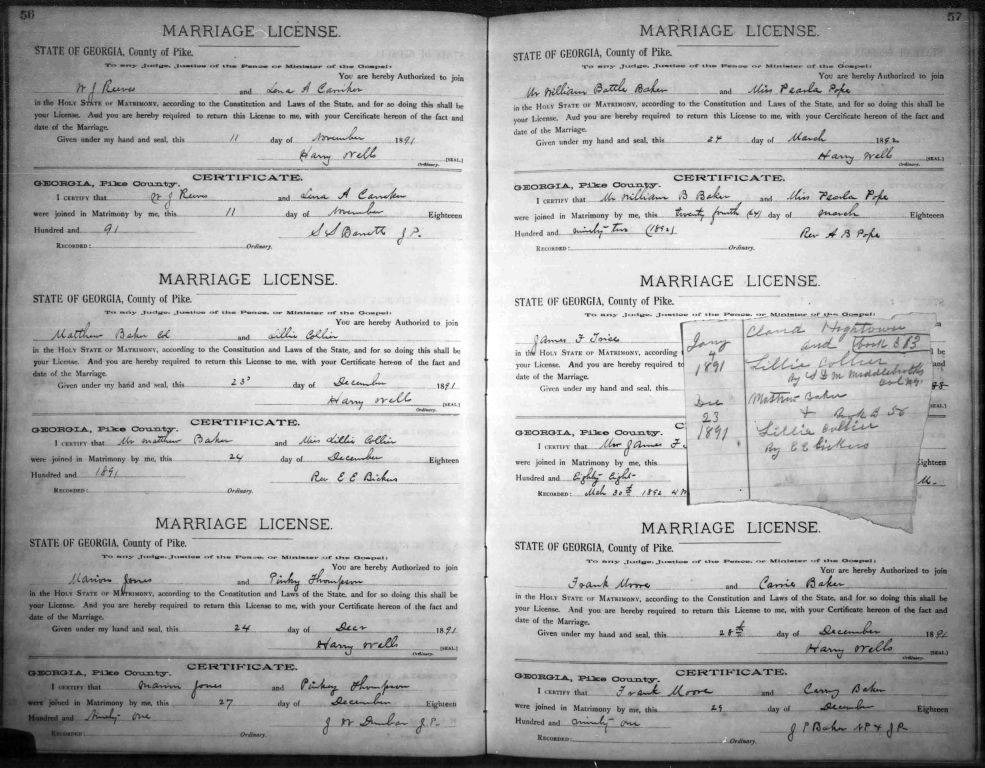 56
MARRIAGE LICENSE.
STATE OF GEORGIA, County of Pike.
To any Judge, Justice of the Peace or Minister of the Gospel:
You are hereby Authorized to join
W J Reeves and Lena A
in the HOLY STATE OF MATRIMONY, according to the Constitution and Laws of the State, and for so doing this shall be
your License. And you are hereby required to return this License to me, with your Cereificate hereon of the fact and
date of the Marriage.
Given under my hand and seal, this 11 day of November 1891
Harry Wells [SEAL]
Ordinary.
CERTIFICATE.
GEORGIA, Pike County.
I CERTIFY that W J Reeves and Lena A
were joined in Matrimony by me, this 11 day of November Eighteen
Hundred and 91 S S Barrett J P.
RECORDED: Ordinary.
MARRIAGE LICENSE.
STATE OF GEORGIA, County of Pike.
To any Judge, Justice of the Peace, or Minister of the Gospel:
You are hereby Authorized to join
Matthew Baker Col and Lillie Collier
in the HOLY STATE OF MATRIMONY, according to the Constitution and Laws of the State, and for so doing this shall be
your License. And you are hereby required to return this License to me, with your Certificate hereon of the fact and
date of the Marriage.
Given under my hand and seal, this 23 day of December 1891
Harry Wells [SEAL]
Ordinary.
CERTIFICATE.
GEORGIA, Pike County.
I CERTIFY that Mr Matthew Baker and Miss Lillie Collier
were joined in Matrimony by me, this 24 day of December Eighteen
Hundred and 1891 Rev E E Bickers
RECORDED: Ordinary.
MARRIAGE LICENSE.
STATE OF GEORGIA, County of Pike.
To any Judge, Justice of the Peace, or Minister of the Gospel:
You are hereby Authorized to join
Marion Jones and Pinky Thompson
in the HOLY STATE OF MATRIMONY, according to the Constitution and Laws of the State, and for so doing this shall be
your License. And you are hereby required to return this License to me, with your Certificate hereon of the fact and
date of the Marriage.
Given under my hand and seal, this 24 day of Decr 1891
Harry Wells [SEAL]
Ordinary.
CERTIFICATE.
GEORGIA, Pike County.
I CERTIFY that Jones and Pinkey Thompson
were joined in Matrimony by me, this 27 day of December Eighteen
Hundred and Ninety one J W Dunbar J. P.
RECORDED: Ordinary.
57
MARRIAGE LICENSE.
STATE OF GEORGIA, County of Pike.
To any Judge, Justice of the Peace or Minister of the Gospel:
You are hereby Authorized to join
Mr William Battle Baker and Miss Pearla Pope
in the HOLY STATE OF MATRIMONY, according to the Constitution and Laws of the State, and for so doing this shall be
your License. And you are hereby required to return this License to me, with your Cereificate hereon of the fact and
date of the Marriage.
Given under my hand and seal, this 24 day of March 1892
Harry Wells [SEAL.]
Ordinary.
CERTIFICATE.
GEORGIA, Pike County.
I CERTIFY that Mr William B Baker and Miss Pearla Pope
were joined in Matrimony by me, this twenty fourth (24) day of March Eighteen
Hundred and ninety two (1892) Rev A B Pope
RECORDED: Ordinary.
MARRIAGE LICENSE.
STATE OF GEORGIA, County of Pike.
To any Judge, Justice of the Peace, or Minister of the Gospel:
James F Trice
in the HOLY STATE OF MATRIMONY, according l be
your License. And you are hereby required to and
date of the Marriage.
Given under my hand and seal, this
SEAL.]
GEORGIA, Pike County.
I CERTIFY that Mr James F
were joined in Matrimony by me, this
Hundred and Eighty Eight Eighteen
RECORDED: Mch 30th 1892
Jany 4 1891
Claud Hightown
and book B 83
Lillie Collier
By S D M Middlebrooks
Dec 23 1891
Mathew Baker
+ Book B 56
Lillie Collier
By E E Bickers
MARRIAGE LICENSE.
STATE OF GEORGIA, County of Pike.
To any Judge, Justice of the Peace, or Minister of the Gospel:
You are hereby Authorized to join
Frank Moore and Carrie Baker
in the HOLY STATE OF MATRIMONY, according to the Constitution and Laws of the State, and for so doing this shall be
your License. And you are hereby required to return this License to me, with your Certificate hereon of the fact and
date of the Marriage.
Given under my hand and seal, this 28th day of December 1891
Harry Wells [SEAL]
Ordinary.
CERTIFICATE.
GEORGIA, Pike County.
I CERTIFY that Frank Moore and Carry Baker
were joined in Matrimony by me, this 29 day of December Eighteen
Hundred and ninety one J P Baker NP & J P
RECORDED: Ordinary.